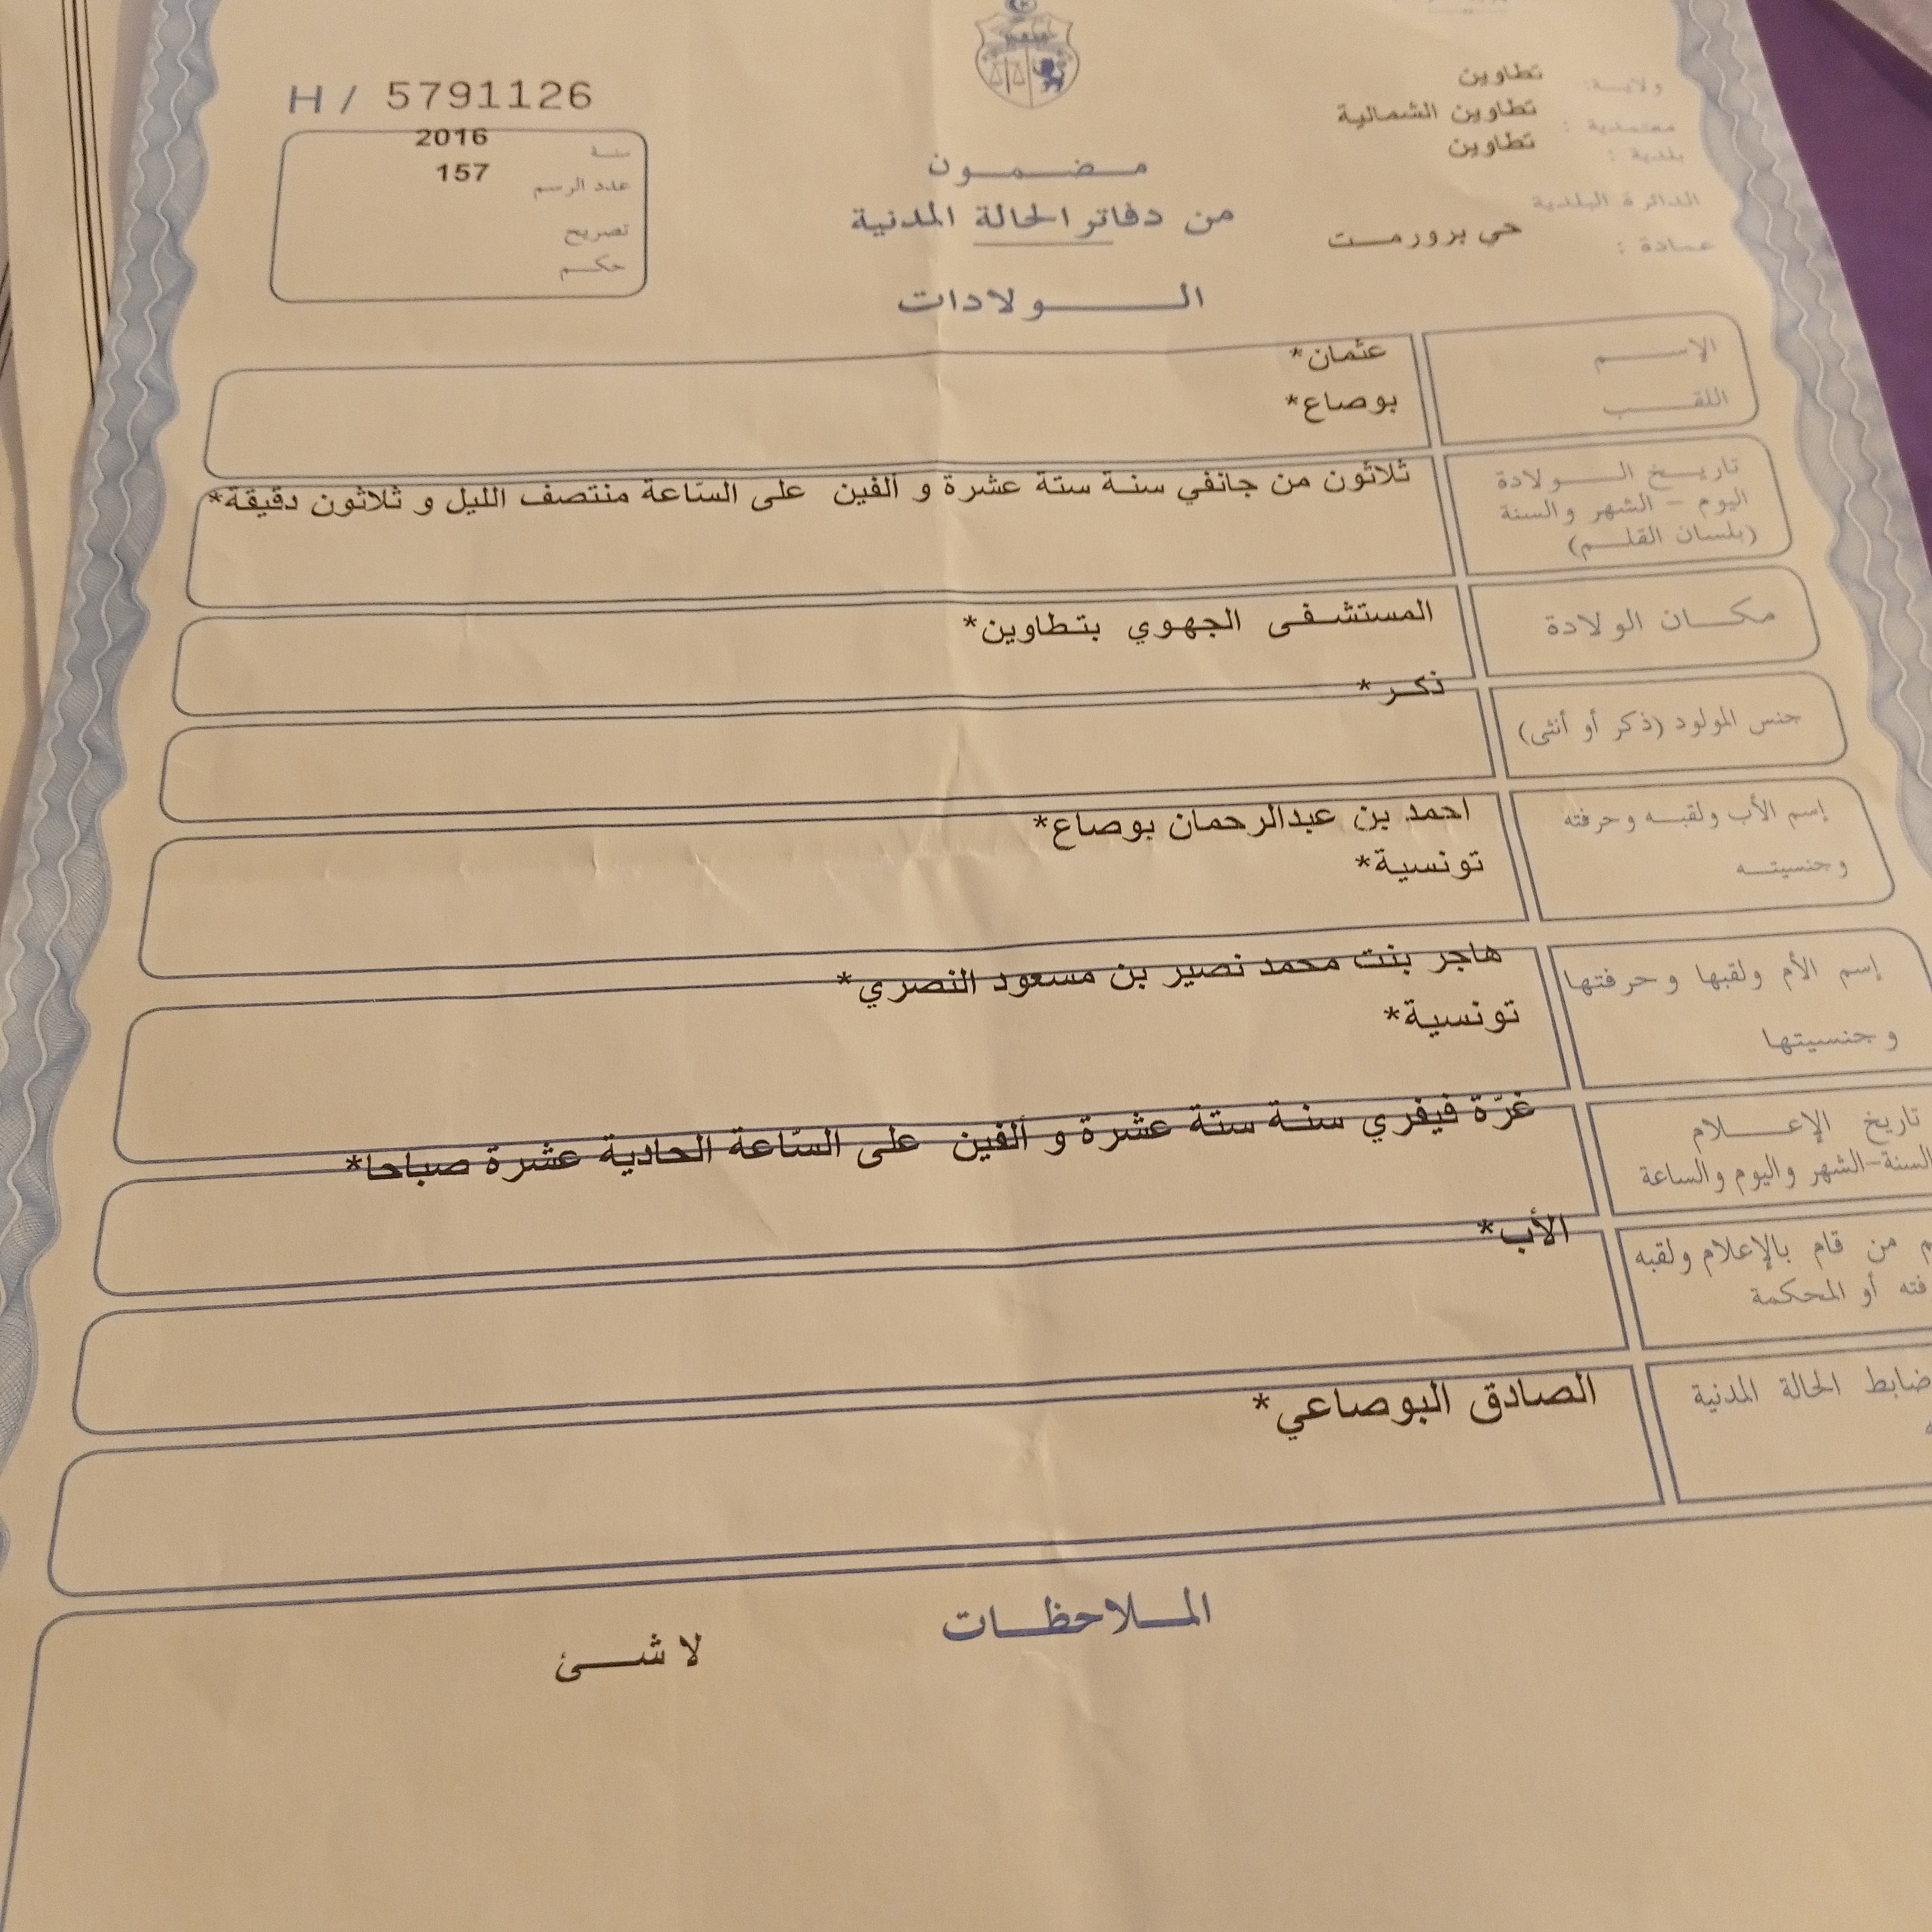 H / 5791126
ولايـــة: تطاوين
معتمدية : تطاوين الشمالية
بلدية : تطاوين
الدائرة البلدية
عمادة : حي برورمست
سنـة 2016
عدد الرسم 157
تصريح
حكم
مضمون
من دفاتر الحالة المدنية
الولادات
الإسم عثمان*
اللقب بوصاع*
تاريخ الولادة
اليوم - الشهر والسنة
(بلسان القلم)
ثلاثون من جانفي سنة ستة عشرة و ألفين على السّاعة منتصف الليل و ثلاثون دقيقة*
مكان الولادة المستشفى الجهوي بتطاوين*
جنس المولود (ذكر أو أنثى) ذكر*
إسم الأب ولقبه وحرفته احمد بن عبدالرحمان بوصاع*
وجنسيته تونسية*
إسم الأم ولقبها وحرفتها هاجر بنت محمد نصير بن مسعود النصري*
وجنسيتها تونسية*
تاريخ الإعلام غرّة فيفري سنة ستة عشرة و ألفين على السّاعة الحادية عشرة صباحا*
السنة-الشهر واليوم والساعة
من قام بالإعلام ولقبه الأب*
أو المحكمة
ضابط الحالة المدنية الصادق البوصاعي*
الملاحظات
لا شئ